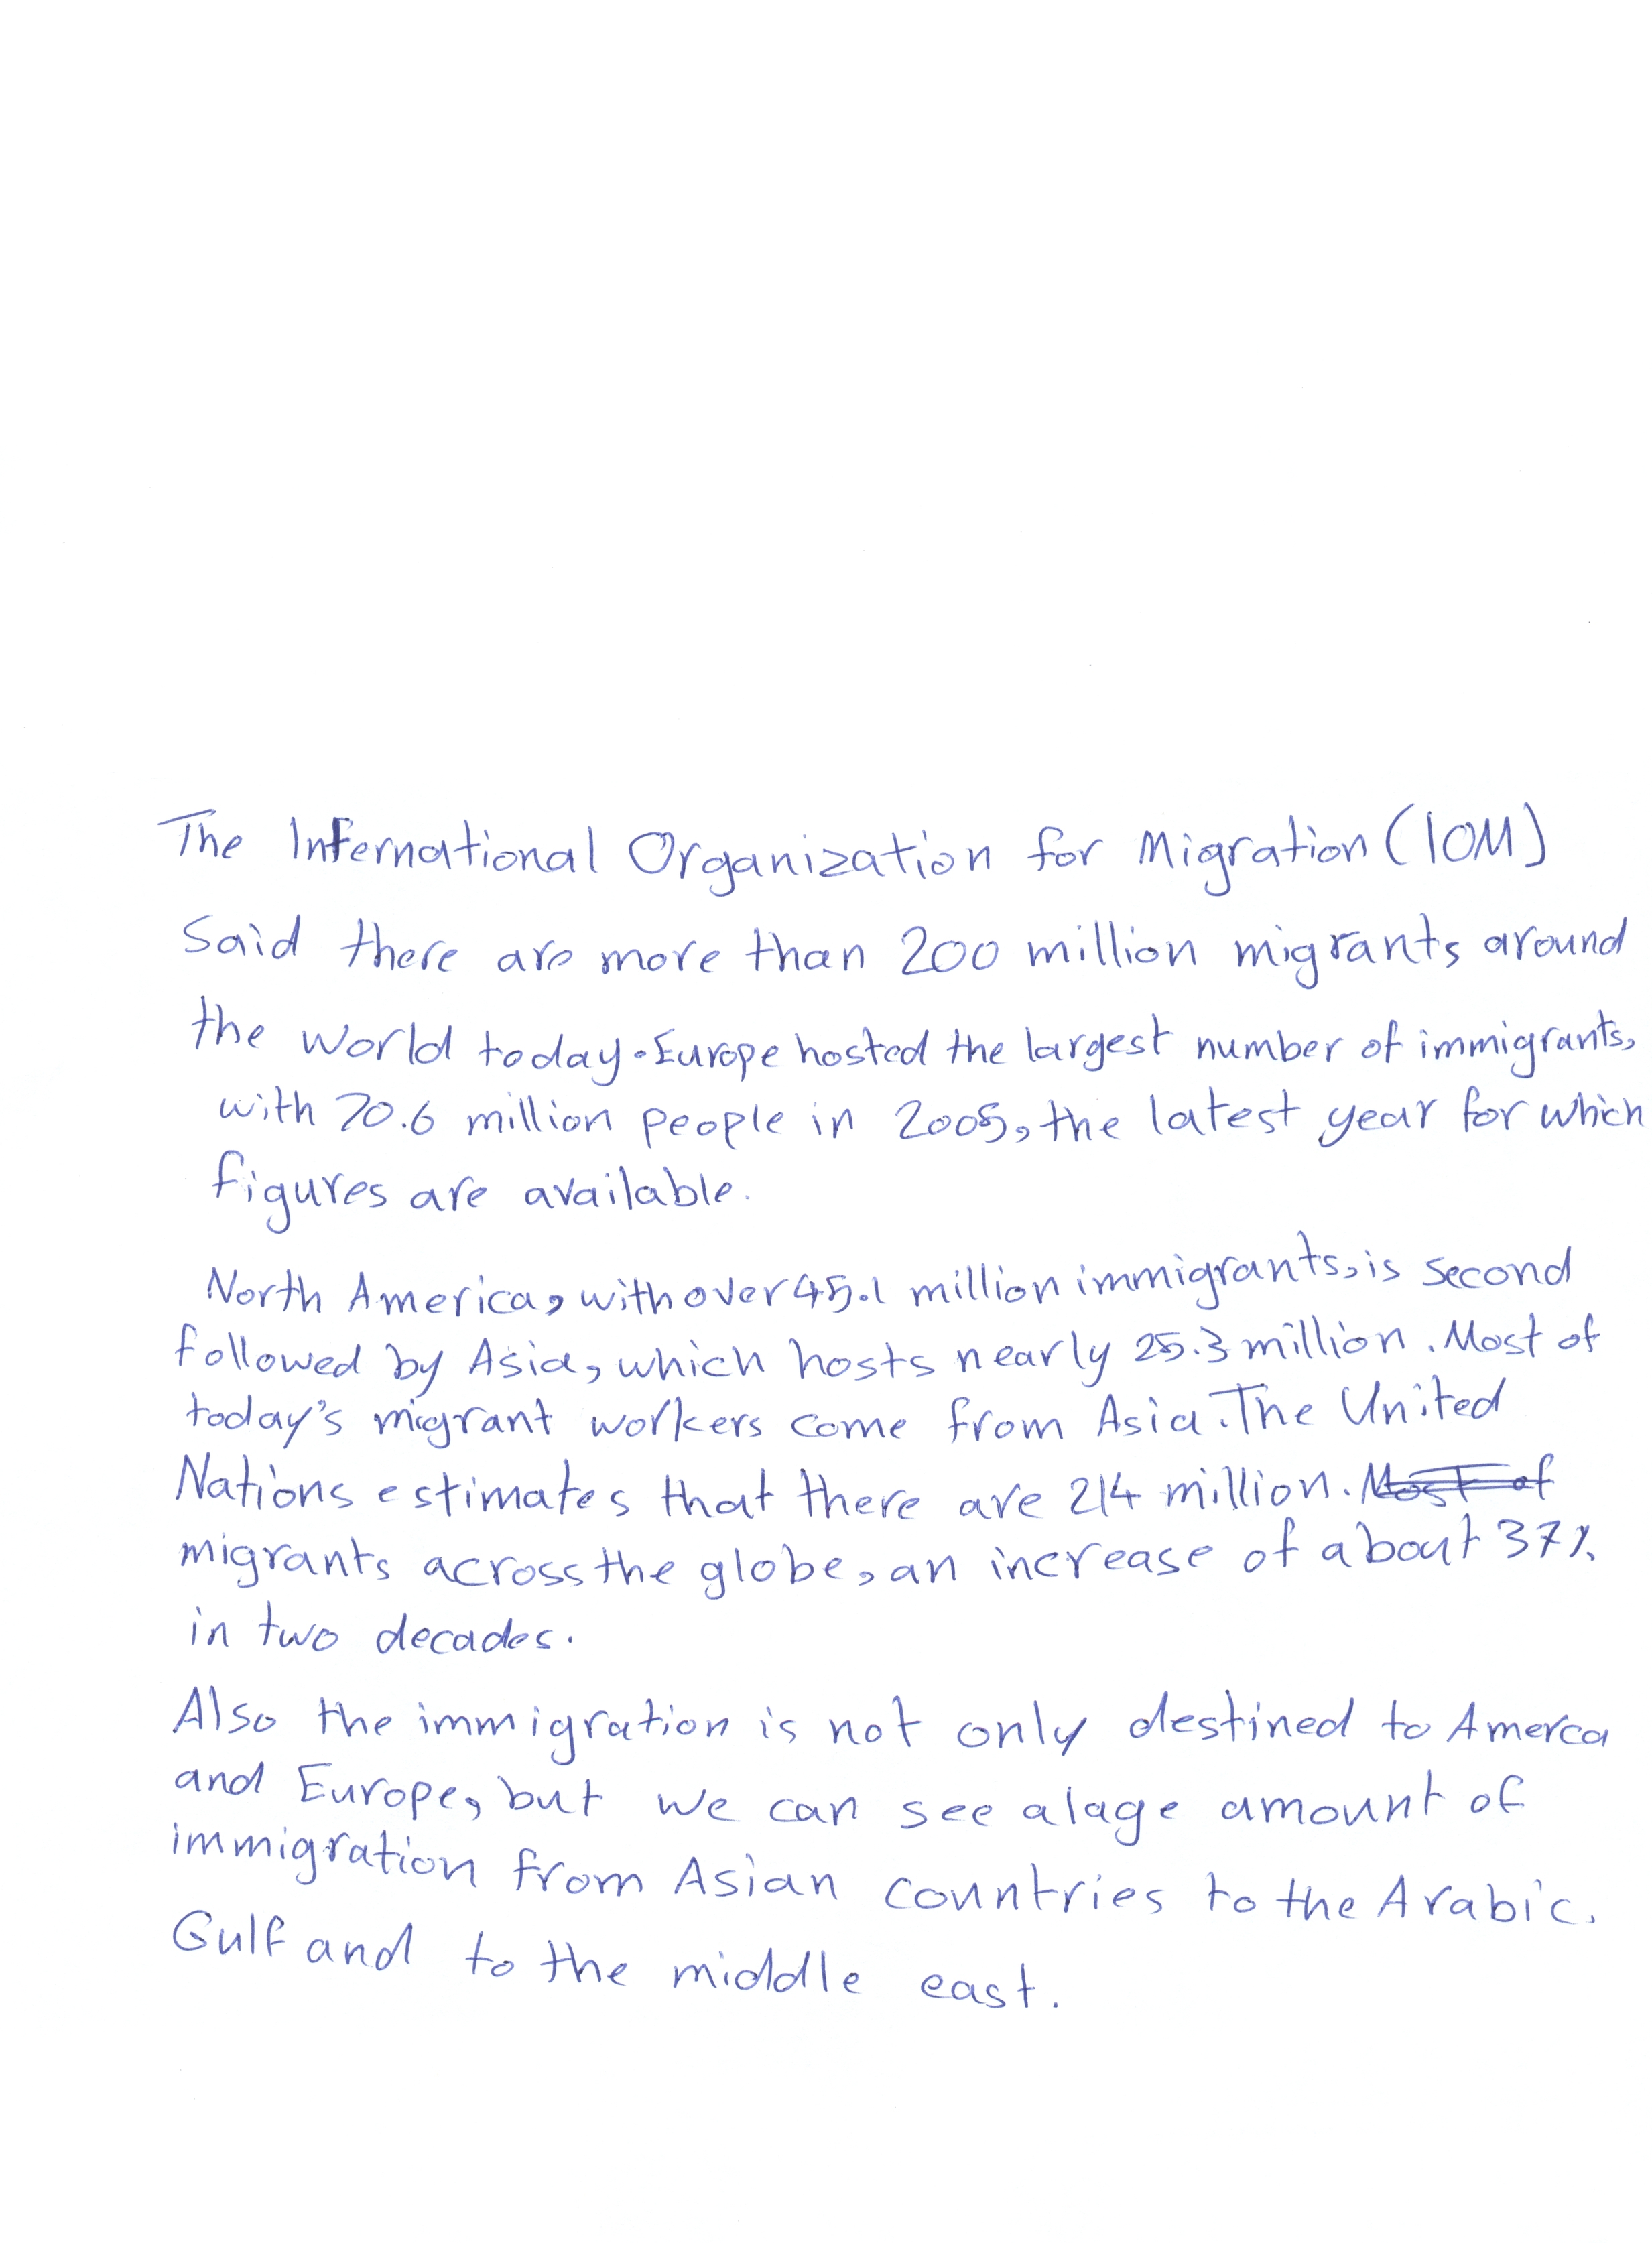 The International Organization for Migration (IOM)
Said there are more than 200 million migrants around
the world today. Europe hosted the largest number of immigrants,
with 70.6 million people in 2005, the latest year for which
figures are available.
North America, with over 45.1 million immigrants, is second
followed by Asia, which hosts nearly 25.3 million. Most of
today's migrant workers come from Asia. The United
Nations estimates that there are 214 million. Most of
migrants across the globe, an increase of about 37%
in two decades.
Also the immigration is not only destined to Amerca
and Europe, but we can see a lage amount of
immigration from Asian countries to the Arabic.
Gulf and to the middle east.